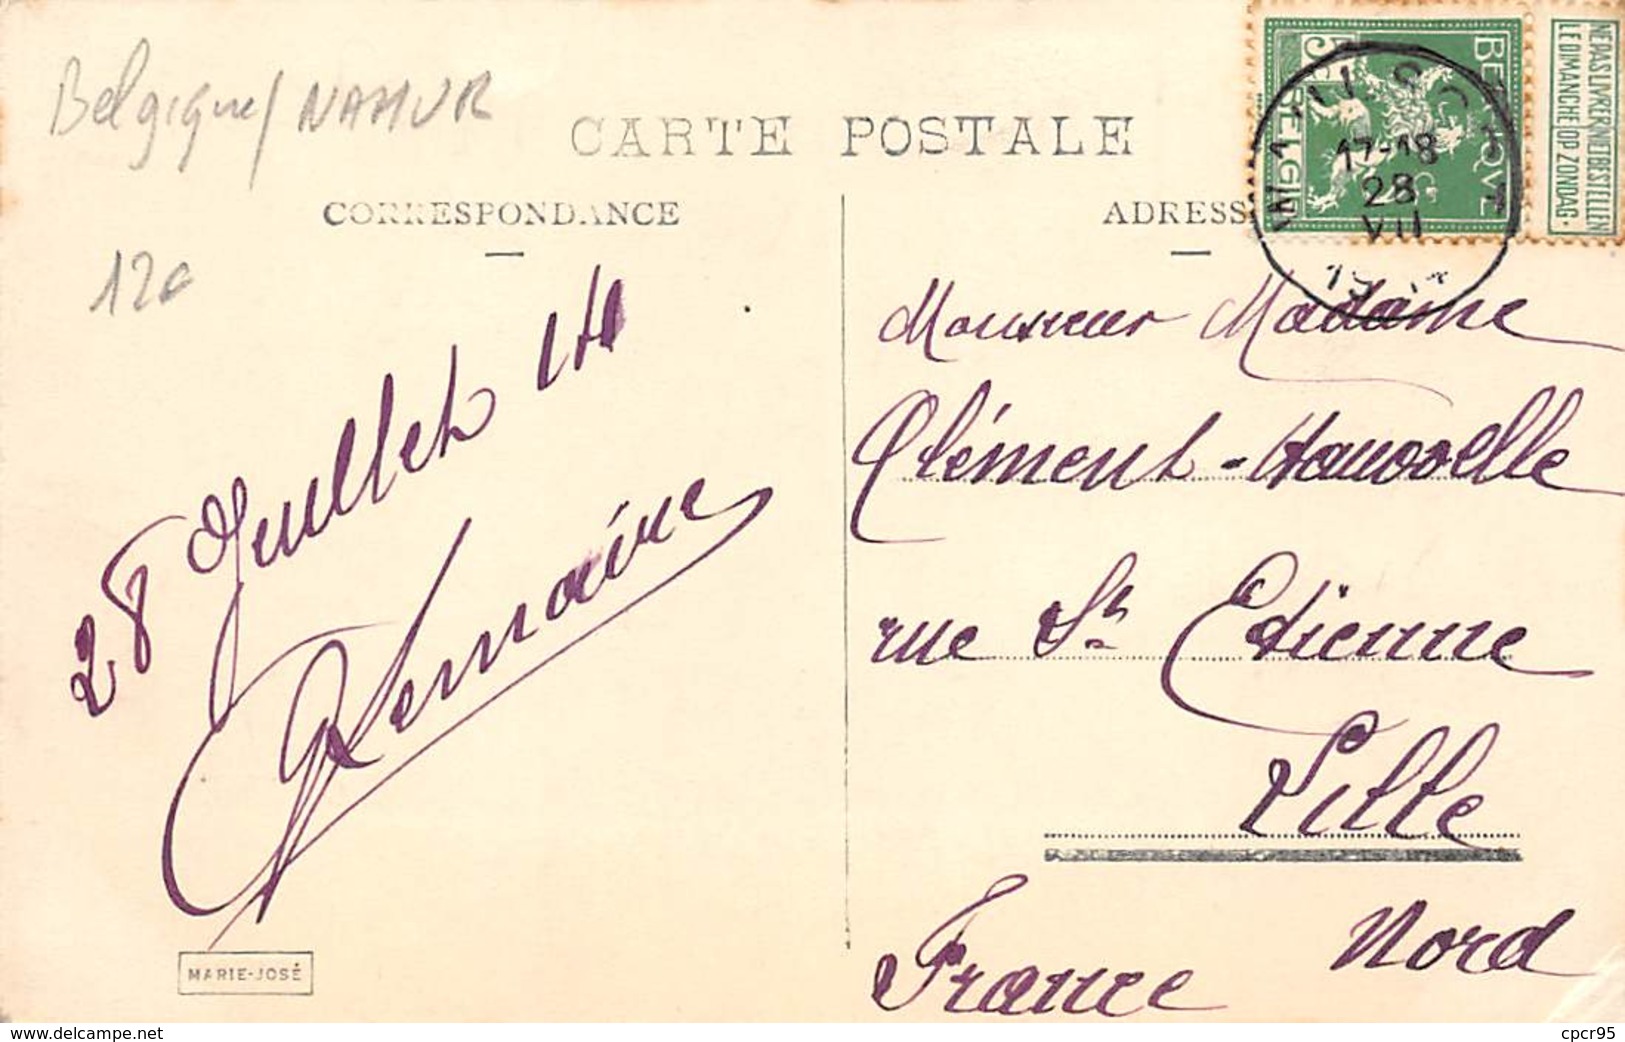 Belgique/NAMUR
12c
CARTE POSTALE
CORRESPONDANCE
ADRESS
BELGIQVE
5
BELGIË
NE PAS LIVRER
LE DIMANCHE
NIET BESTELLEN
OP ZONDAG.
17-18
28
VII
28 Juillet 14
Monsieur Madame
Clément-
rue St Etienne
Lille
Nord
France
MARIE-JOSÉ
delcampe.net
cpcr95